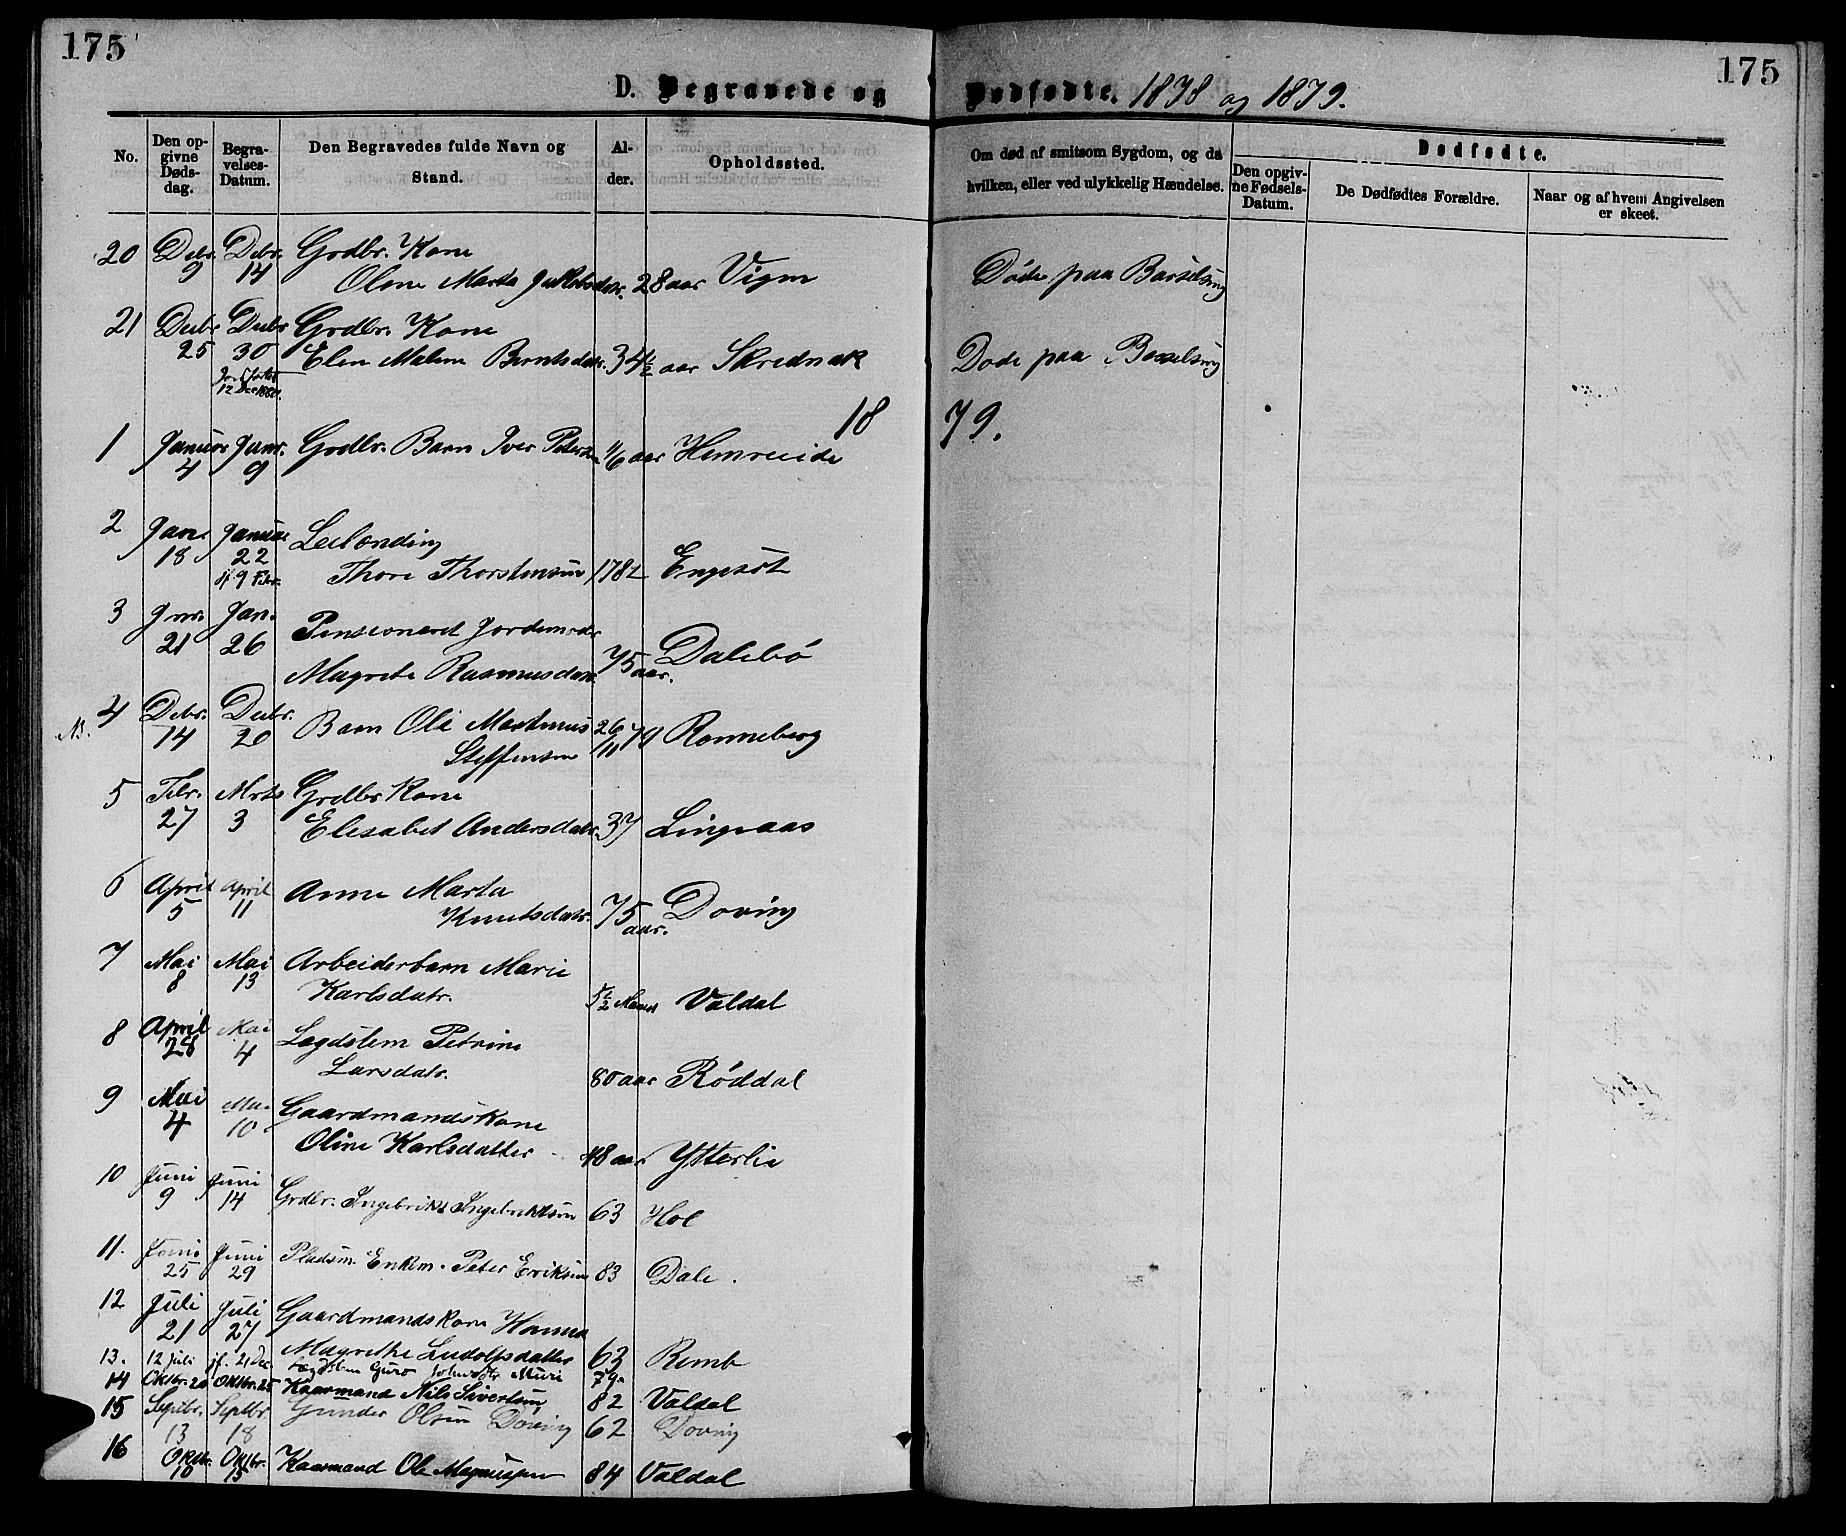 175
175
D. Begravede og Dødfødte. 1878 og 1879.
No.
Den opgivne Dødsdag.
Begravelses-Datum.
Den Begravedes fulde Navn og Stand.
Alder.
Opholdssted.
Om død af smitsom Sygdom, og da hvilken, eller ved ulykkelig Hændelse.
Dødfødte.
Den opgivne Fødsels-Datum.
De Dødfødtes Forældre.
Naar og af hvem Angivelsen er skeet.
20 Debr. 9 Debr. 14 Grdbr. Kone
Oline Marta Jakobsdatr. 28 aar Døde paa Barselseng
21 Decbr 25 Decbr 30 Grdbr. Kone
Elen Malene Berntsdatr. 34½ aar Døde paa Barselseng
12 Dec 1880.
1879.
1 Januar 4 Janr. 9 Grdbr. Barn Iver Petersen aar
2 Janr 18 Januar 22 Leilænding
jf. 9 Febr. Thore Thorstensen 1782 Engeset
3 Janr. 21 Jan. 26 Pensioneret Jordemoder
Magrete Rasmusdatr. 75 aar. Dalebø
4 Debr. 14 Decbr. 20 Barn Ole Martinus 26/11 79 Ronneberg
Steffensen
5 Febr. 27 Mrts 3 Grdbr Kone
Elisabet Andersdatr. 37 Lingaas
6 April 5 April 11 Anne Marta
Knutsdatr. 75 aar. Døving
7 Mai 8 Mai 13 Arbeiderbarn Marie
Karlsdatr. 5½ Maaned Valdal
8 April 28 Mai 4 Lægdslem Petrine
Larsdatr. 80 aar Røddal
9 Mai 4 Mai 10 Gaardmandskone
Oline Karlsdatter 48 aar Ytterlie
10 Juni 9 Juni 14 Grdbr. Ingebrikt Ingebriktsen 63 Hol
11. Juni 25 Juni 29 Pladsm. Enkem. Peter Eriksen 83 Dale.
12 Juli 21 Juli 27 Gaardmandskone Hanna
Magrethe Ludolfsdatter 63 Remb
13. 12 Juli jf. 21 Dec Lægdslem Guro Muri 79
14 Oktbr. 20 Oktbr. 25 Kaarmand Nils Sivertsen 82 Valdal
15 Septbr. 13 Septbr 18 Gunder Olsen Døving 62 Døving
16 Oktbr. 10 Oktbr. 15 Kaarmand Ole Magnussen 84 Valdal